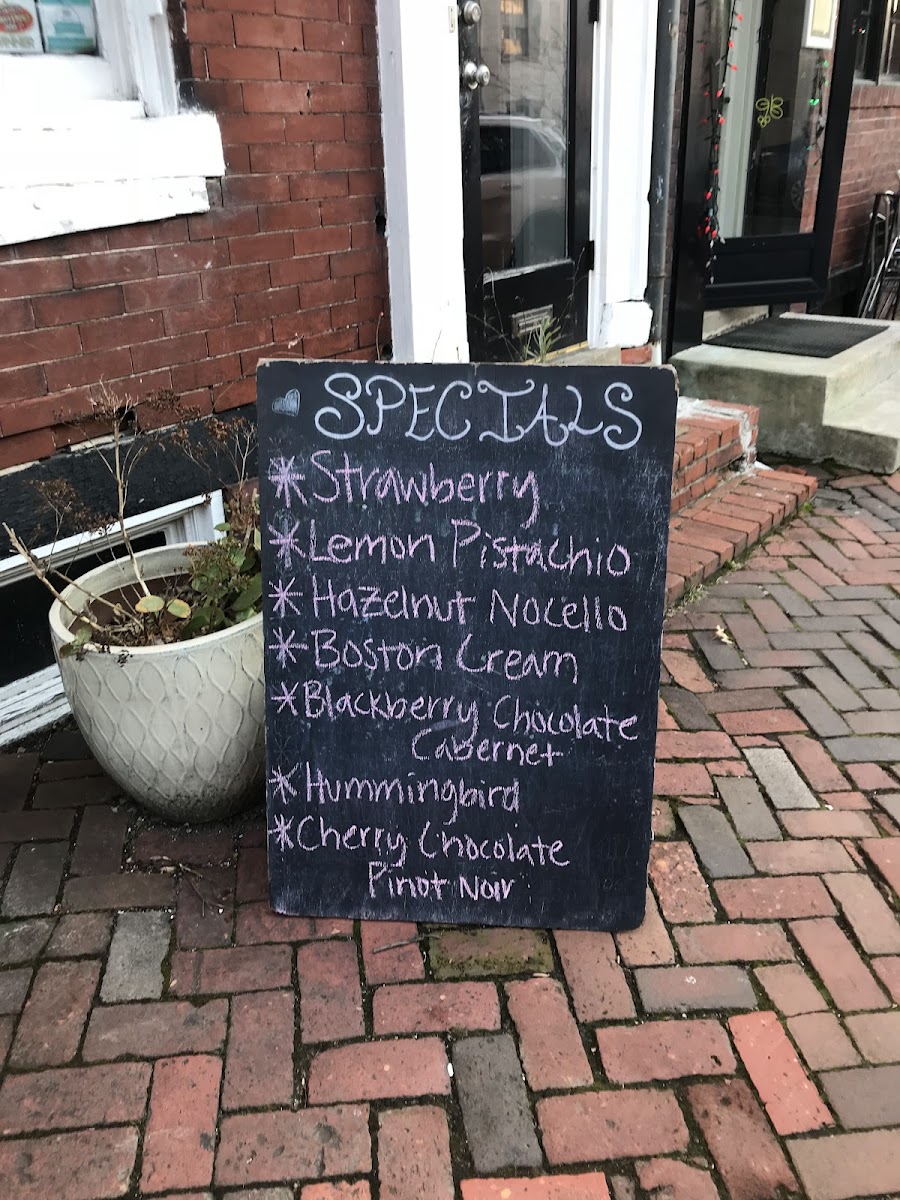 SPECIALS
* Strawberry
* Lemon Pistachio
* Hazelnut Nocello
* Boston Cream
* Blackberry Chocolate
Cabernet
* Hummingbird
* Cherry Chocolate
Pinot Noir